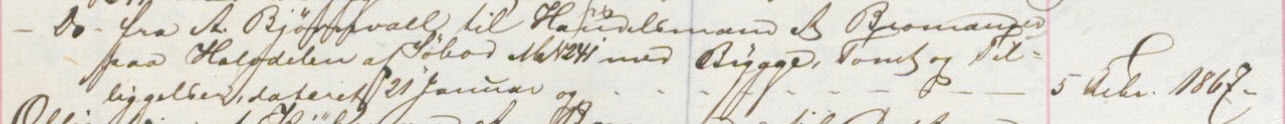 - Do - fra A. Bjørnevall til Handelsmand A Bromander
paa Halvdelen af Søbod No 241 med Brygge, Tomt og Til=
liggelser, dateret 21 Januar og - - - - - - - - 5 Febr. 1867 -